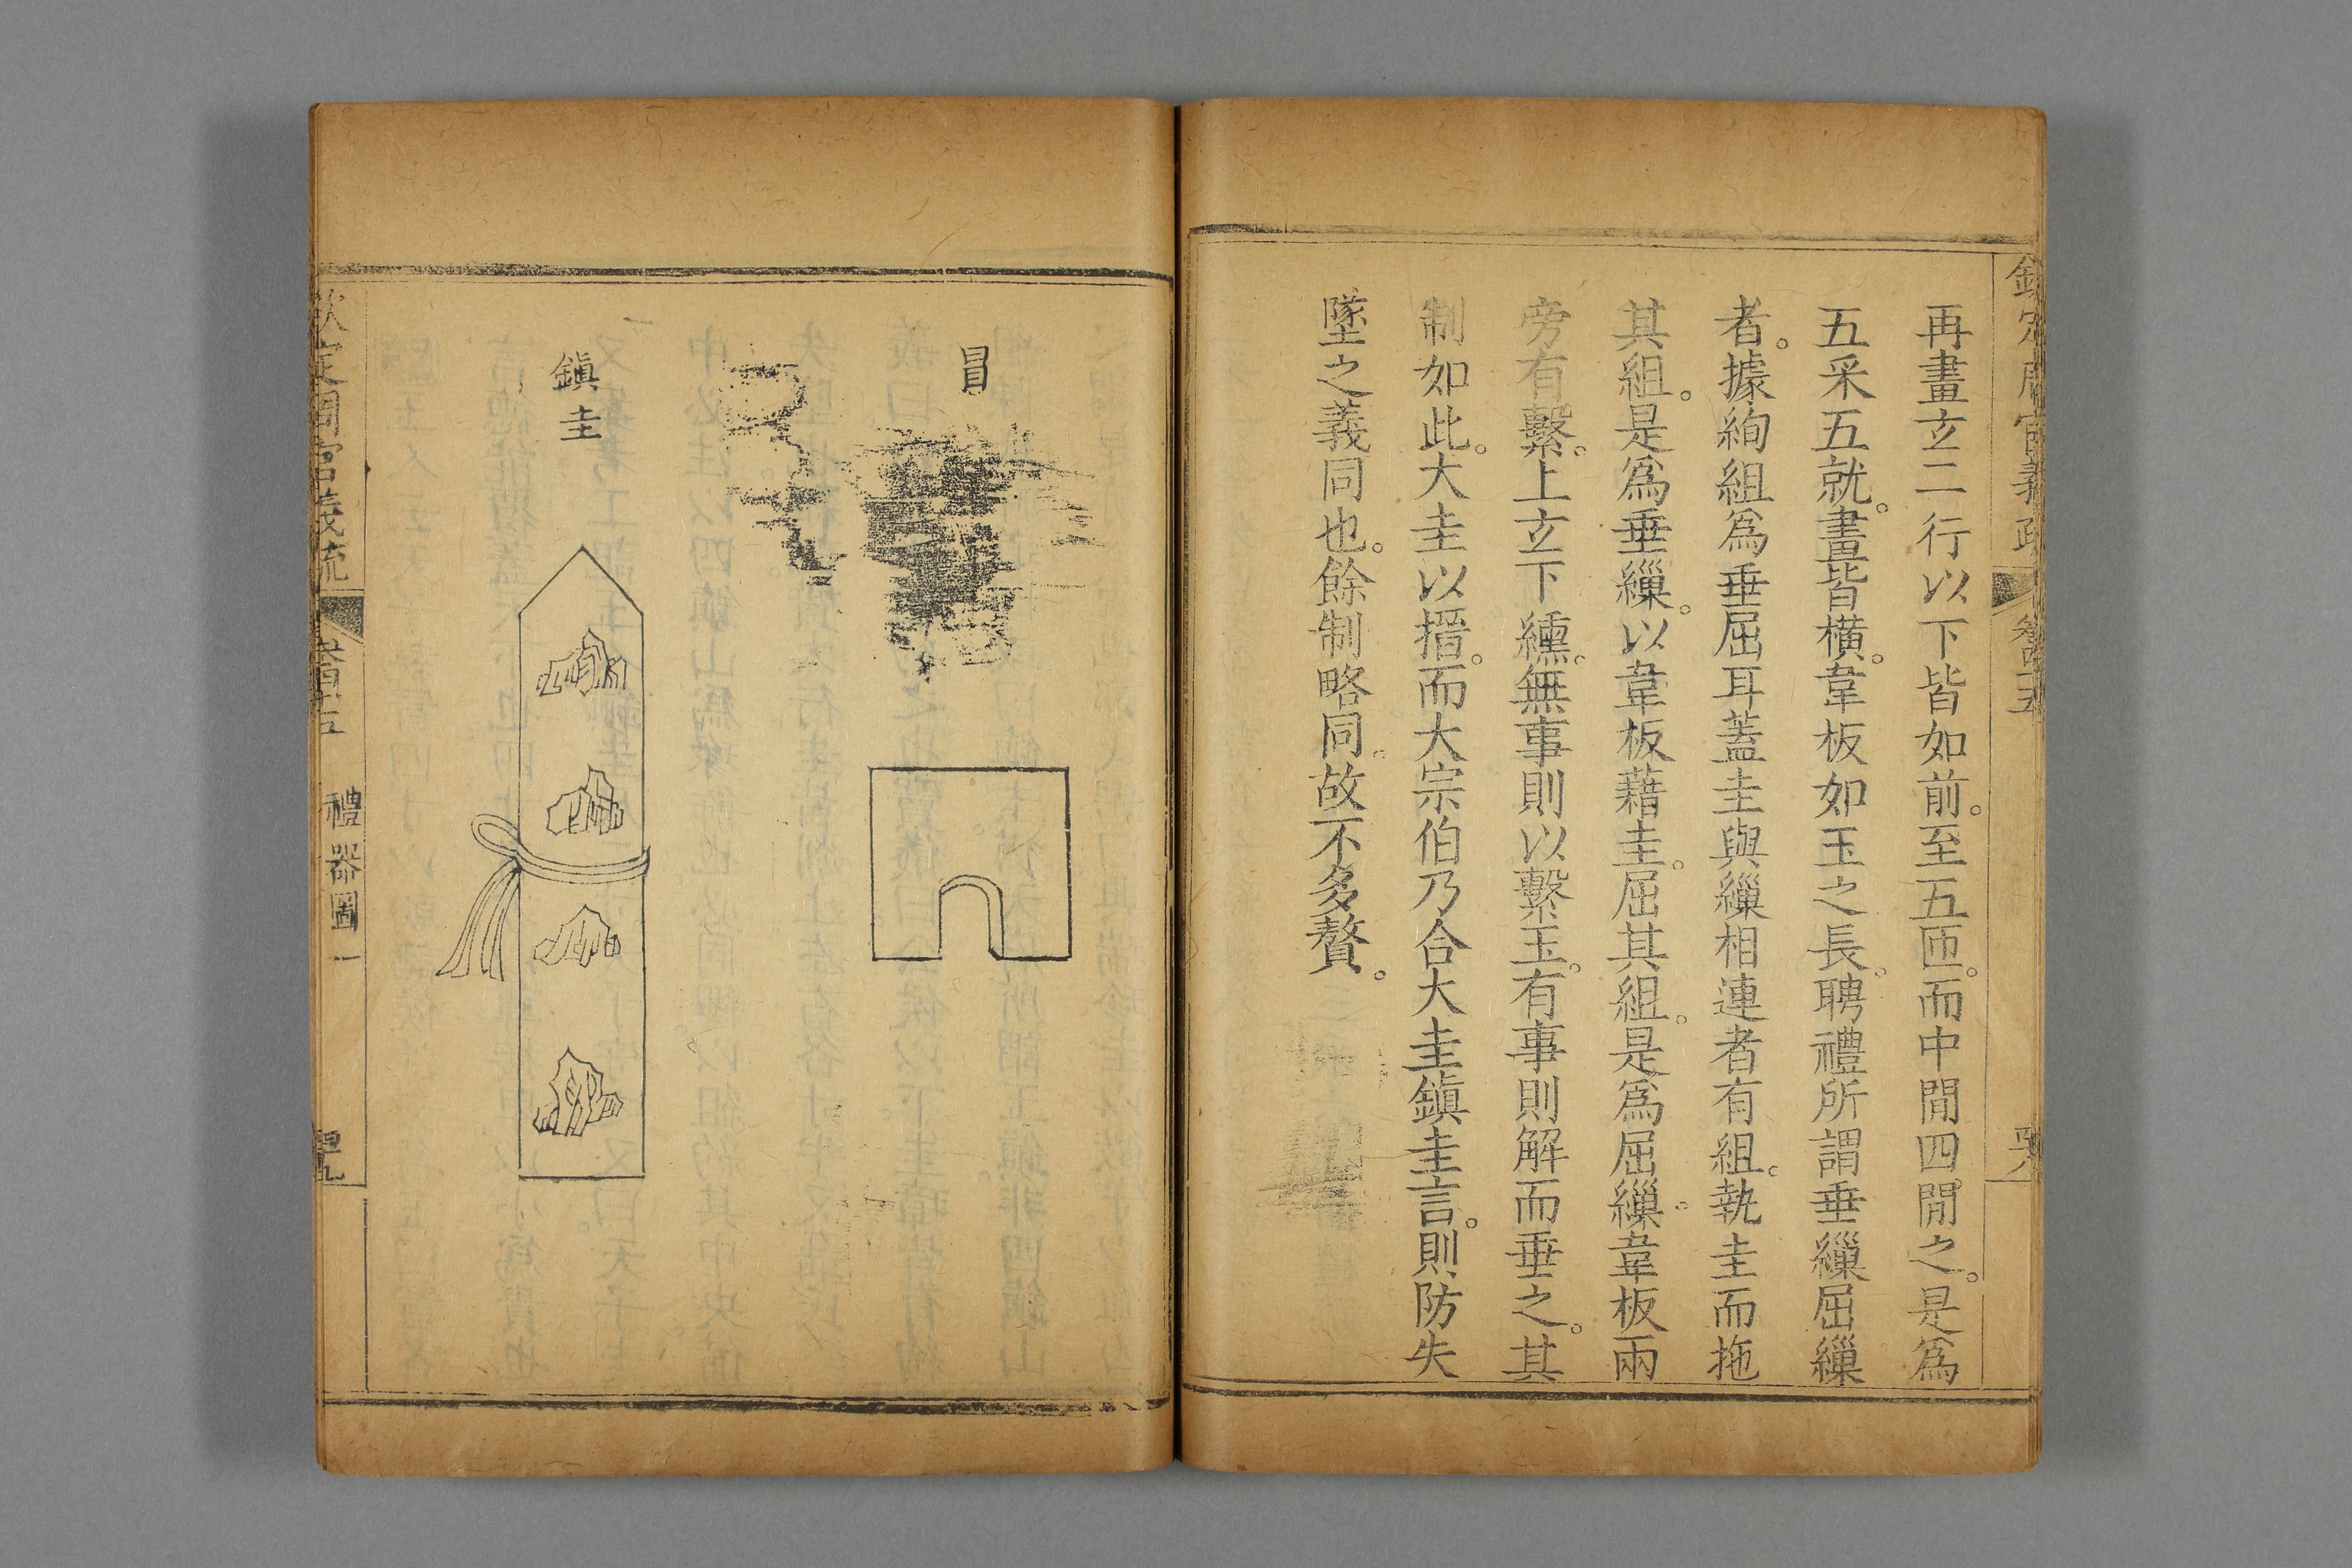 欽定周官義疏 卷四十五 四十八
再畫玄二行以下皆如前。至五匝。而中閒四閒之。是爲
五采五就。畫皆橫。韋板如玉之長。聘禮所謂垂繅屈繅
者。據絢組爲垂屈耳蓋圭與繅相連者有組。執圭而拖
其組。是爲垂繅。以韋板藉圭。屈其組。是爲屈繅。韋板兩
旁有繫。上玄下纁。無事則以繫玉。有事則解而垂之。其
制如此。大圭以搢。而大宗伯乃合大圭鎭圭言。則防失
墜之義同也。餘制略同。故不多贅。
冒
鎭圭
欽定周官義疏 卷四十五 禮器圖一 四十九